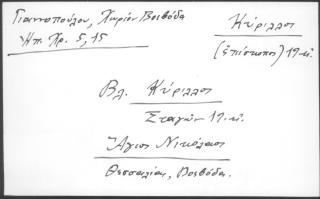 Γιαννοπούλου, Χωρίον Βοϊβόδα
Ἠπ. Χρ. 5, 15
Κύριλλος
(ἐπίσκοπος) 17-
Βλ. Κύριλλος
Σταγῶν 17-
Ἅγιος Νικόλαος
Θεσσαλίας, Βοϊβόδα.